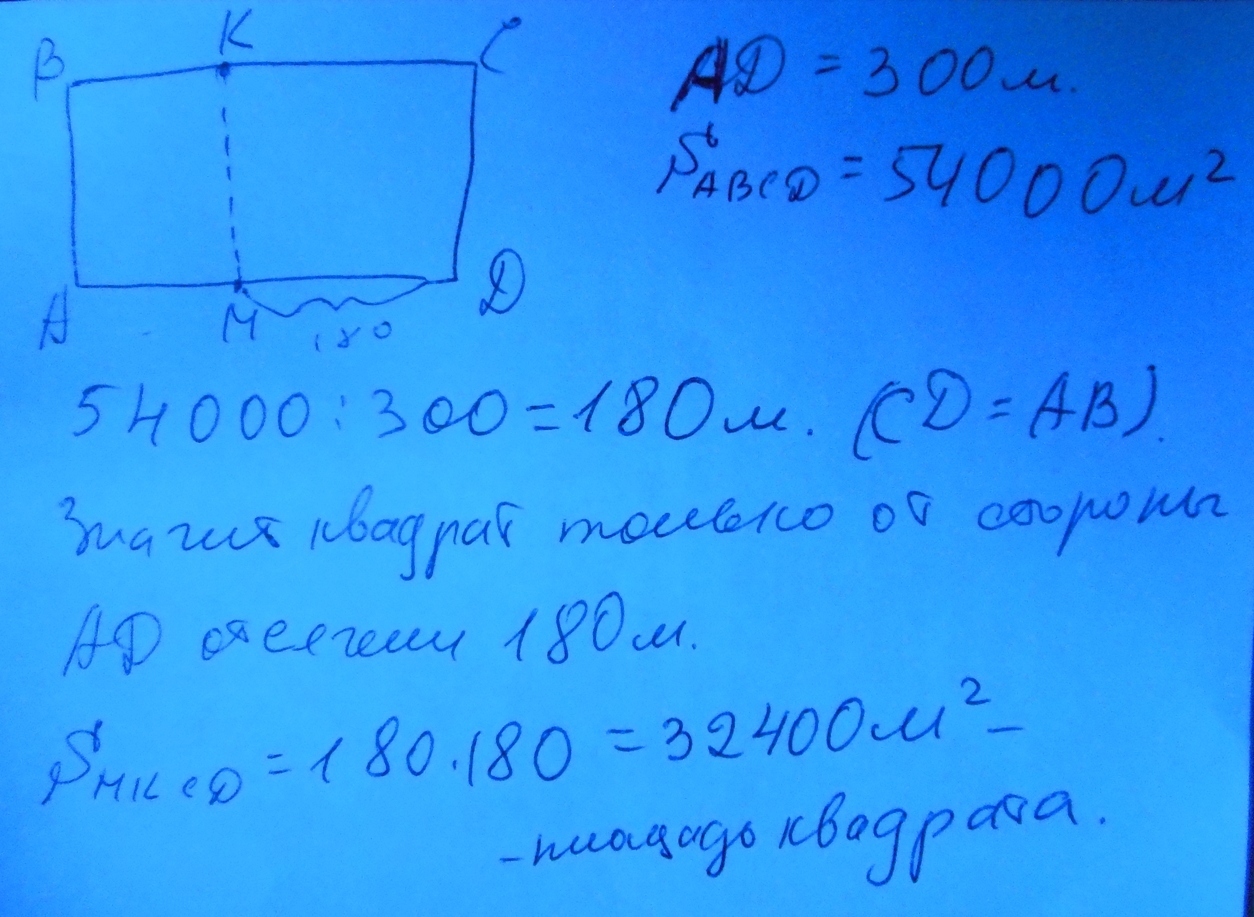 B K C
A M D
180
AD = 300м.
S ABCD = 54000м²
54000:300=180м. (CD=AB).
Значит квадрат только от стороны
AD отсечем 180м.
S MKCD = 180.180 = 32400м² –
– площадь квадрата.